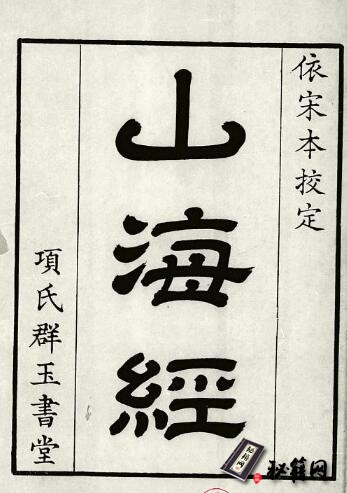 依宋本挍定
山海經
項氏群玉書堂
秘籍网